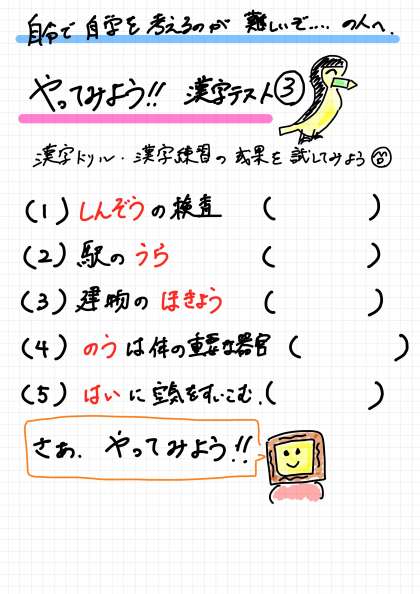 自分で自学を考えるのが難しいぞ‥‥の人へ.
やってみよう!! 漢字テスト③
漢字ドリル・漢字練習の成果を試してみよう
(1) しんぞうの検査 (        )
(2) 駅のうら (        )
(3) 建物のほきょう (        )
(4) のうは体の重要な器官 (        )
(5) はいに空気をすいこむ. (        )
さあ. やってみよう!!